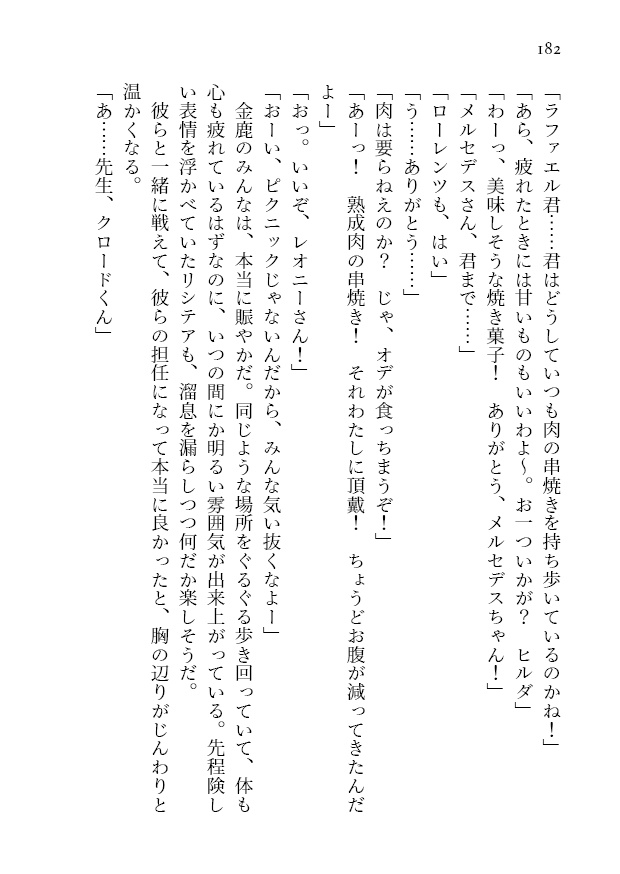 182
「ラファエル君……君はどうしていつも肉の串焼きを持ち歩いているのかね！」
「あら、疲れたときには甘いものもいいわよ～。お一ついかが？　ヒルダ」
「わーっ、美味しそうな焼き菓子！　ありがとう、メルセデスちゃん！」
「メルセデスさん、君まで……」
「ローレンツも、はい」
「う……ありがとう……」
「肉は要らねえのか？　じゃ、オデが食っちまうぞ！」
「あーっ！　熟成肉の串焼き！　それわたしに頂戴！　ちょうどお腹が減ってきたんだ
よー」
「おっ。いいぞ、レオニーさん！」
「おーい、ピクニックじゃないんだから、みんな気い抜くなよー」
　金鹿のみんなは、本当に賑やかだ。同じような場所をぐるぐる歩き回っていて、体も
心も疲れているはずなのに、いつの間にか明るい雰囲気が出来上がっている。先程険し
い表情を浮かべていたリシテアも、溜息を漏らしつつ何だか楽しそうだ。
　彼らと一緒に戦えて、彼らの担任になって本当に良かったと、胸の辺りがじんわりと
温かくなる。
「あ……先生、クロードくん」